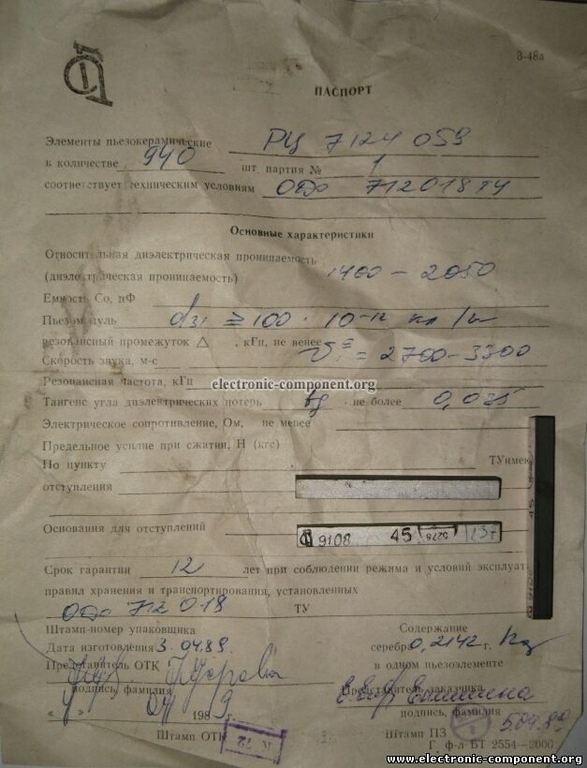 3-48а
ПАСПОРТ
Элементы пьезокерамические РЦ 7124 059
в количестве 940 шт. партия № 1
соответствует техническим условиям ОДО 712018 ТУ
Основные характеристики
Относительная диэлектрическая проницаемость
(диэлектрическая проницаемость) 1400 – 2050
Емкость Со, пФ
Пьезомодуль d31 ≥ 100 · 10-12 кл/н
резонансный промежуток Δ , кГц, не менее
Скорость звука, м-с = 2700 – 3300
Резонансная частота, кГц
electronic-component.org
Тангенс угла диэлектрических потерь tg не более 0,025
Электрическое сопротивление, Ом, не менее
Предельное усилие при сжатии, Н (кгс)
По пункту ТУ имею
отступления
Основания для отступлений
9108 45
Срок гарантии 12 лет при соблюдении режима и условий эксплуат
правил хранения и транспортирования, установленных
ОДО 712 018 ТУ
Штамп-номер упаковщика
Содержание
Дата изготовления 3.04.89.
серебро 0,2142 г.
Представитель ОТК
в одном пьезоэлементе
подпись, фамилия
Представитель заказчика
« 4 » 04 1989 г.
подпись, фамилия
5.04.89
Штамп ОТК
Штамп ПЗ
Г. ф-л БТ 2554—2000
www.electronic-component.org